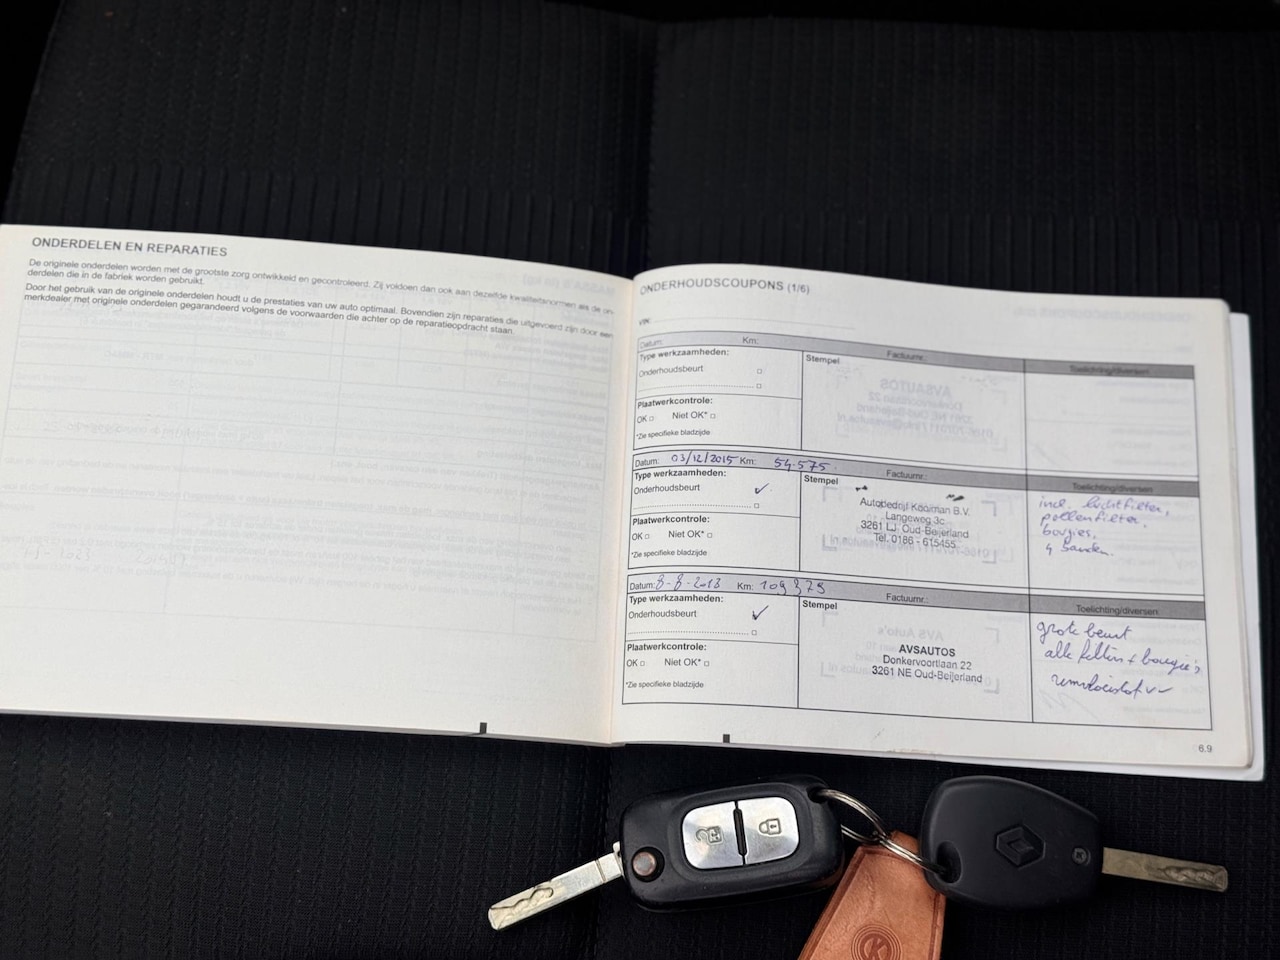 ONDERDELEN EN REPARATIES
De originele onderdelen worden met de grootste zorg ontwikkeld en gecontroleerd. Zij voldoen dan ook aan dezelfde kwaliteitsnormen als de on-
derdelen die in de fabriek worden gebruikt.
Door het gebruik van de originele onderdelen houdt u de prestaties van uw auto optimaal. Bovendien zijn reparaties die uitgevoerd zijn door een
merkdealer met originele onderdelen gegarandeerd volgens de voorwaarden die achter op de reparatieopdracht staan.
ONDERHOUDSCOUPONS (1/6)
VIN:
Datum: Km: Factuurnr.:
Type werkzaamheden: Stempel Toelichting/diversen
Onderhoudsbeurt
Plaatwerkcontrole:
OK Niet OK*
*Zie specifieke bladzijde
Datum: 03/12/2015 Km: 54.575 Factuurnr.:
Type werkzaamheden: Stempel Toelichting/diversen
Onderhoudsbeurt ✓
Plaatwerkcontrole:
OK Niet OK*
*Zie specifieke bladzijde
Autobedrijf Kooiman B.V.
Langeweg 3c
3261 LJ Oud-Beijerland
Tel. 0186 - 615455
incl. luchtfilter,
pollenfilter,
bougies,
4 banden.
Datum: 8-8-2018 Km: 109375 Factuurnr.:
Type werkzaamheden: Stempel Toelichting/diversen
Onderhoudsbeurt ✓
Plaatwerkcontrole:
OK Niet OK*
*Zie specifieke bladzijde
AVSAUTOS
Donkervoortlaan 22
3261 NE Oud-Beijerland
grote beurt
alle filters + bougie's
remvloeistof vv
6.9